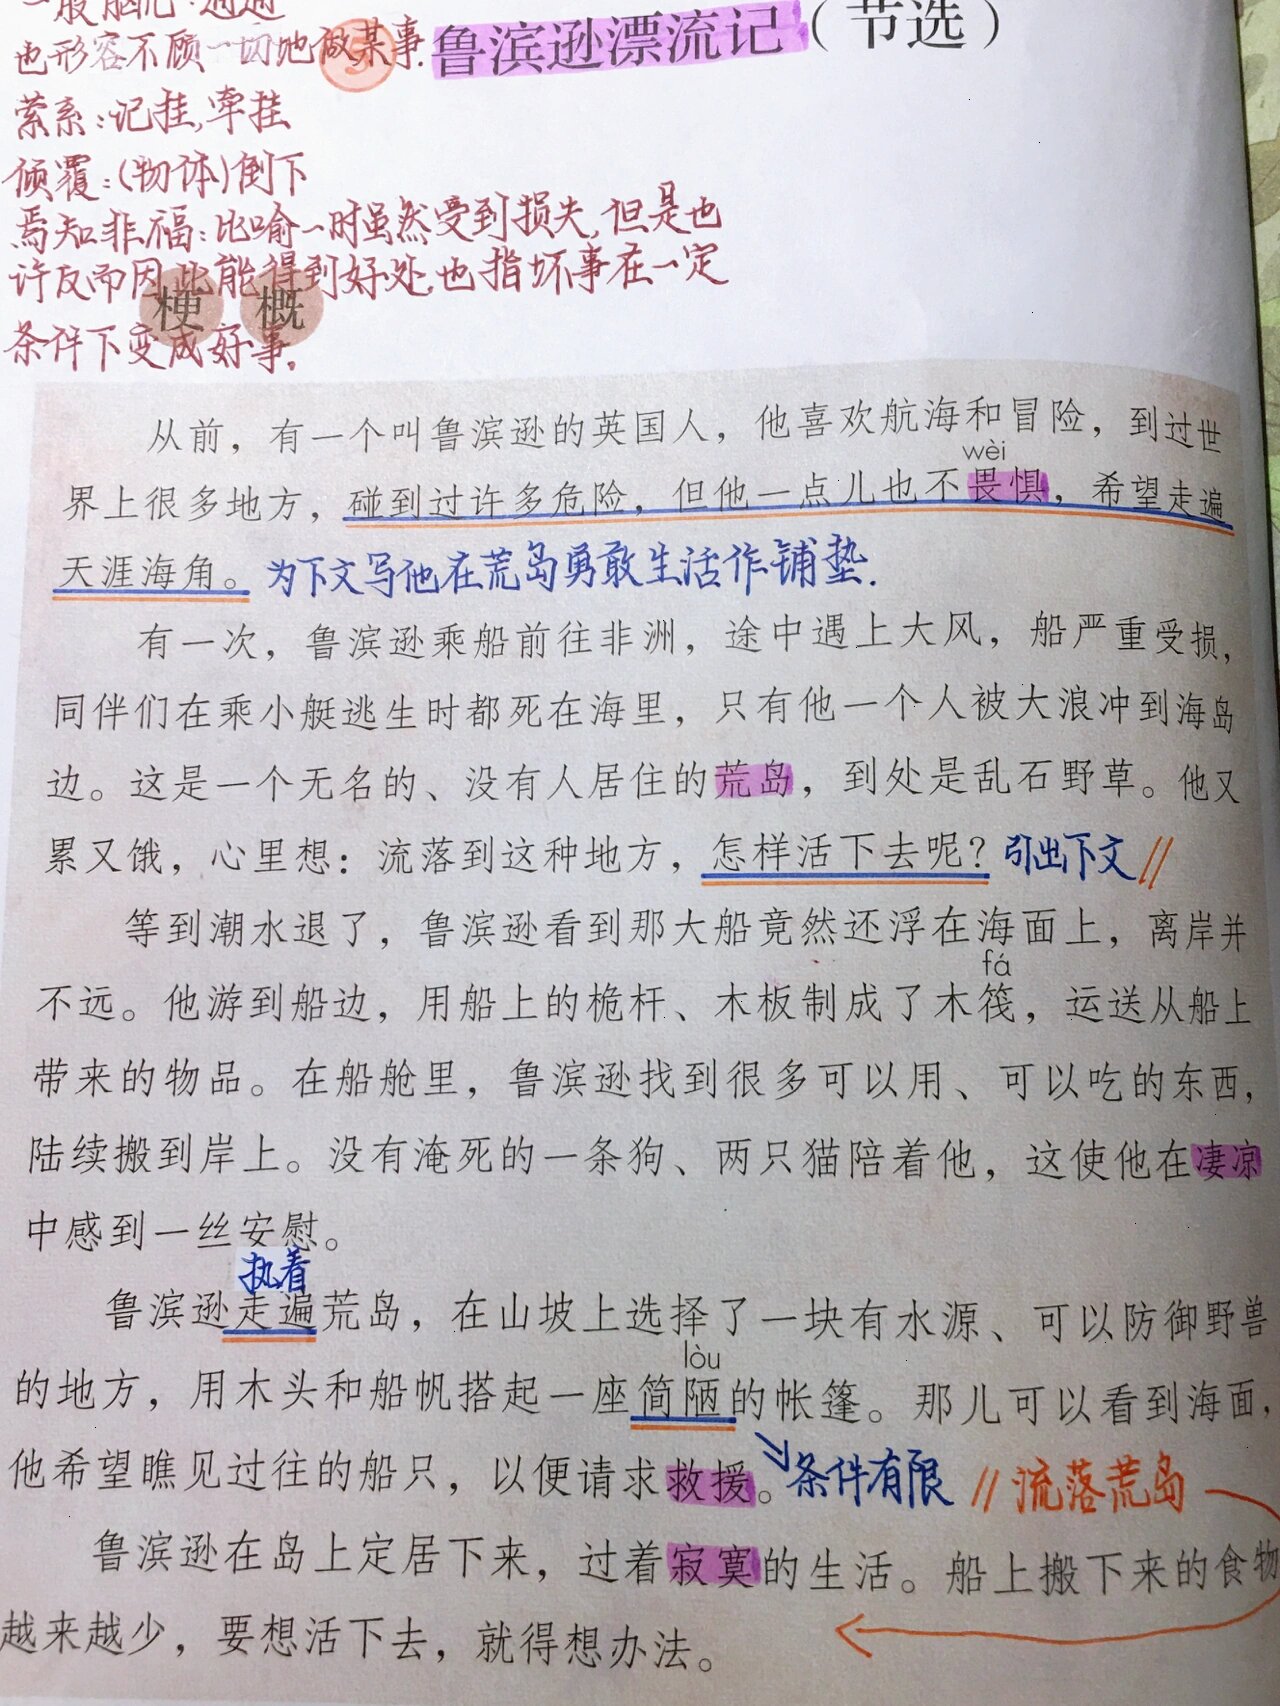 一般脑儿:通通
也形容不顾一切地做某事.
5 鲁滨逊漂流记(节选)
萦系:记挂,牵挂
倾覆:(物体)倒下
焉知非福:比喻一时虽然受到损失,但是也
许反而因此能得到好处,也指坏事在一定
梗概
条件下变成好事.
从前,有一个叫鲁滨逊的英国人,他喜欢航海和冒险,到过世
wèi
界上很多地方,碰到过许多危险,但他一点儿也不畏惧,希望走遍
天涯海角。为下文写他在荒岛勇敢生活作铺垫.
有一次,鲁滨逊乘船前往非洲,途中遇上大风,船严重受损,
同伴们在乘小艇逃生时都死在海里,只有他一个人被大浪冲到海岛
边。这是一个无名的、没有人居住的荒岛,到处是乱石野草。他又
累又饿,心里想:流落到这种地方,怎样活下去呢?引出下文//
等到潮水退了,鲁滨逊看到那大船竟然还浮在海面上,离岸并
fá
不远。他游到船边,用船上的桅杆、木板制成了木筏,运送从船上
带来的物品。在船舱里,鲁滨逊找到很多可以用、可以吃的东西,
陆续搬到岸上。没有淹死的一条狗、两只猫陪着他,这使他在凄凉
中感到一丝安慰。
执着
鲁滨逊走遍荒岛,在山坡上选择了一块有水源、可以防御野兽
lòu
的地方,用木头和船帆搭起一座简陋的帐篷。那儿可以看到海面,
他希望瞧见过往的船只,以便请求救援。条件有限 //流落荒岛
鲁滨逊在岛上定居下来,过着寂寞的生活。船上搬下来的食物
越来越少,要想活下去,就得想办法。